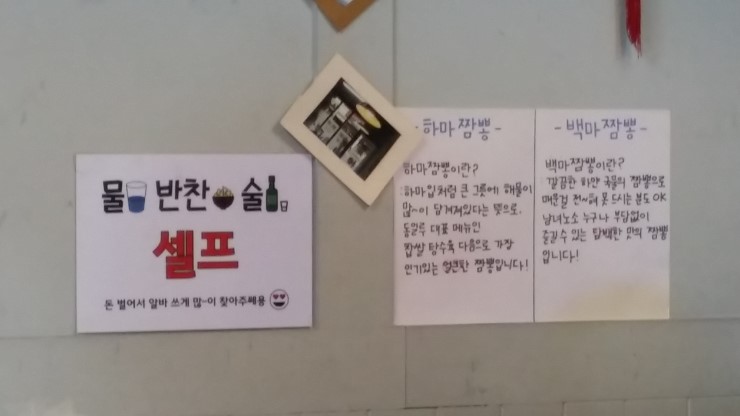 물 반찬 술
셀프
돈 벌어서 알바 쓰게 많~이 찾아주쎄용
-하마짬뽕-
하마짬뽕이란?
:하마입처럼 큰 그릇에 해물이
많~이 담겨져있다는 뜻으로.
동일루 대표 메뉴인
찹쌀 탕수육 다음으로 가장
인기있는 얼큰한 짬뽕입니다!
-백마짬뽕-
백마짬뽕이란?
:깔끔한 하얀 국물의 짬뽕으로
매운걸 전~혀 못 드시는 분도 OK
남녀노소 누구나 부담없이
즐길수 있는 담백한 맛의 짬뽕
입니다!